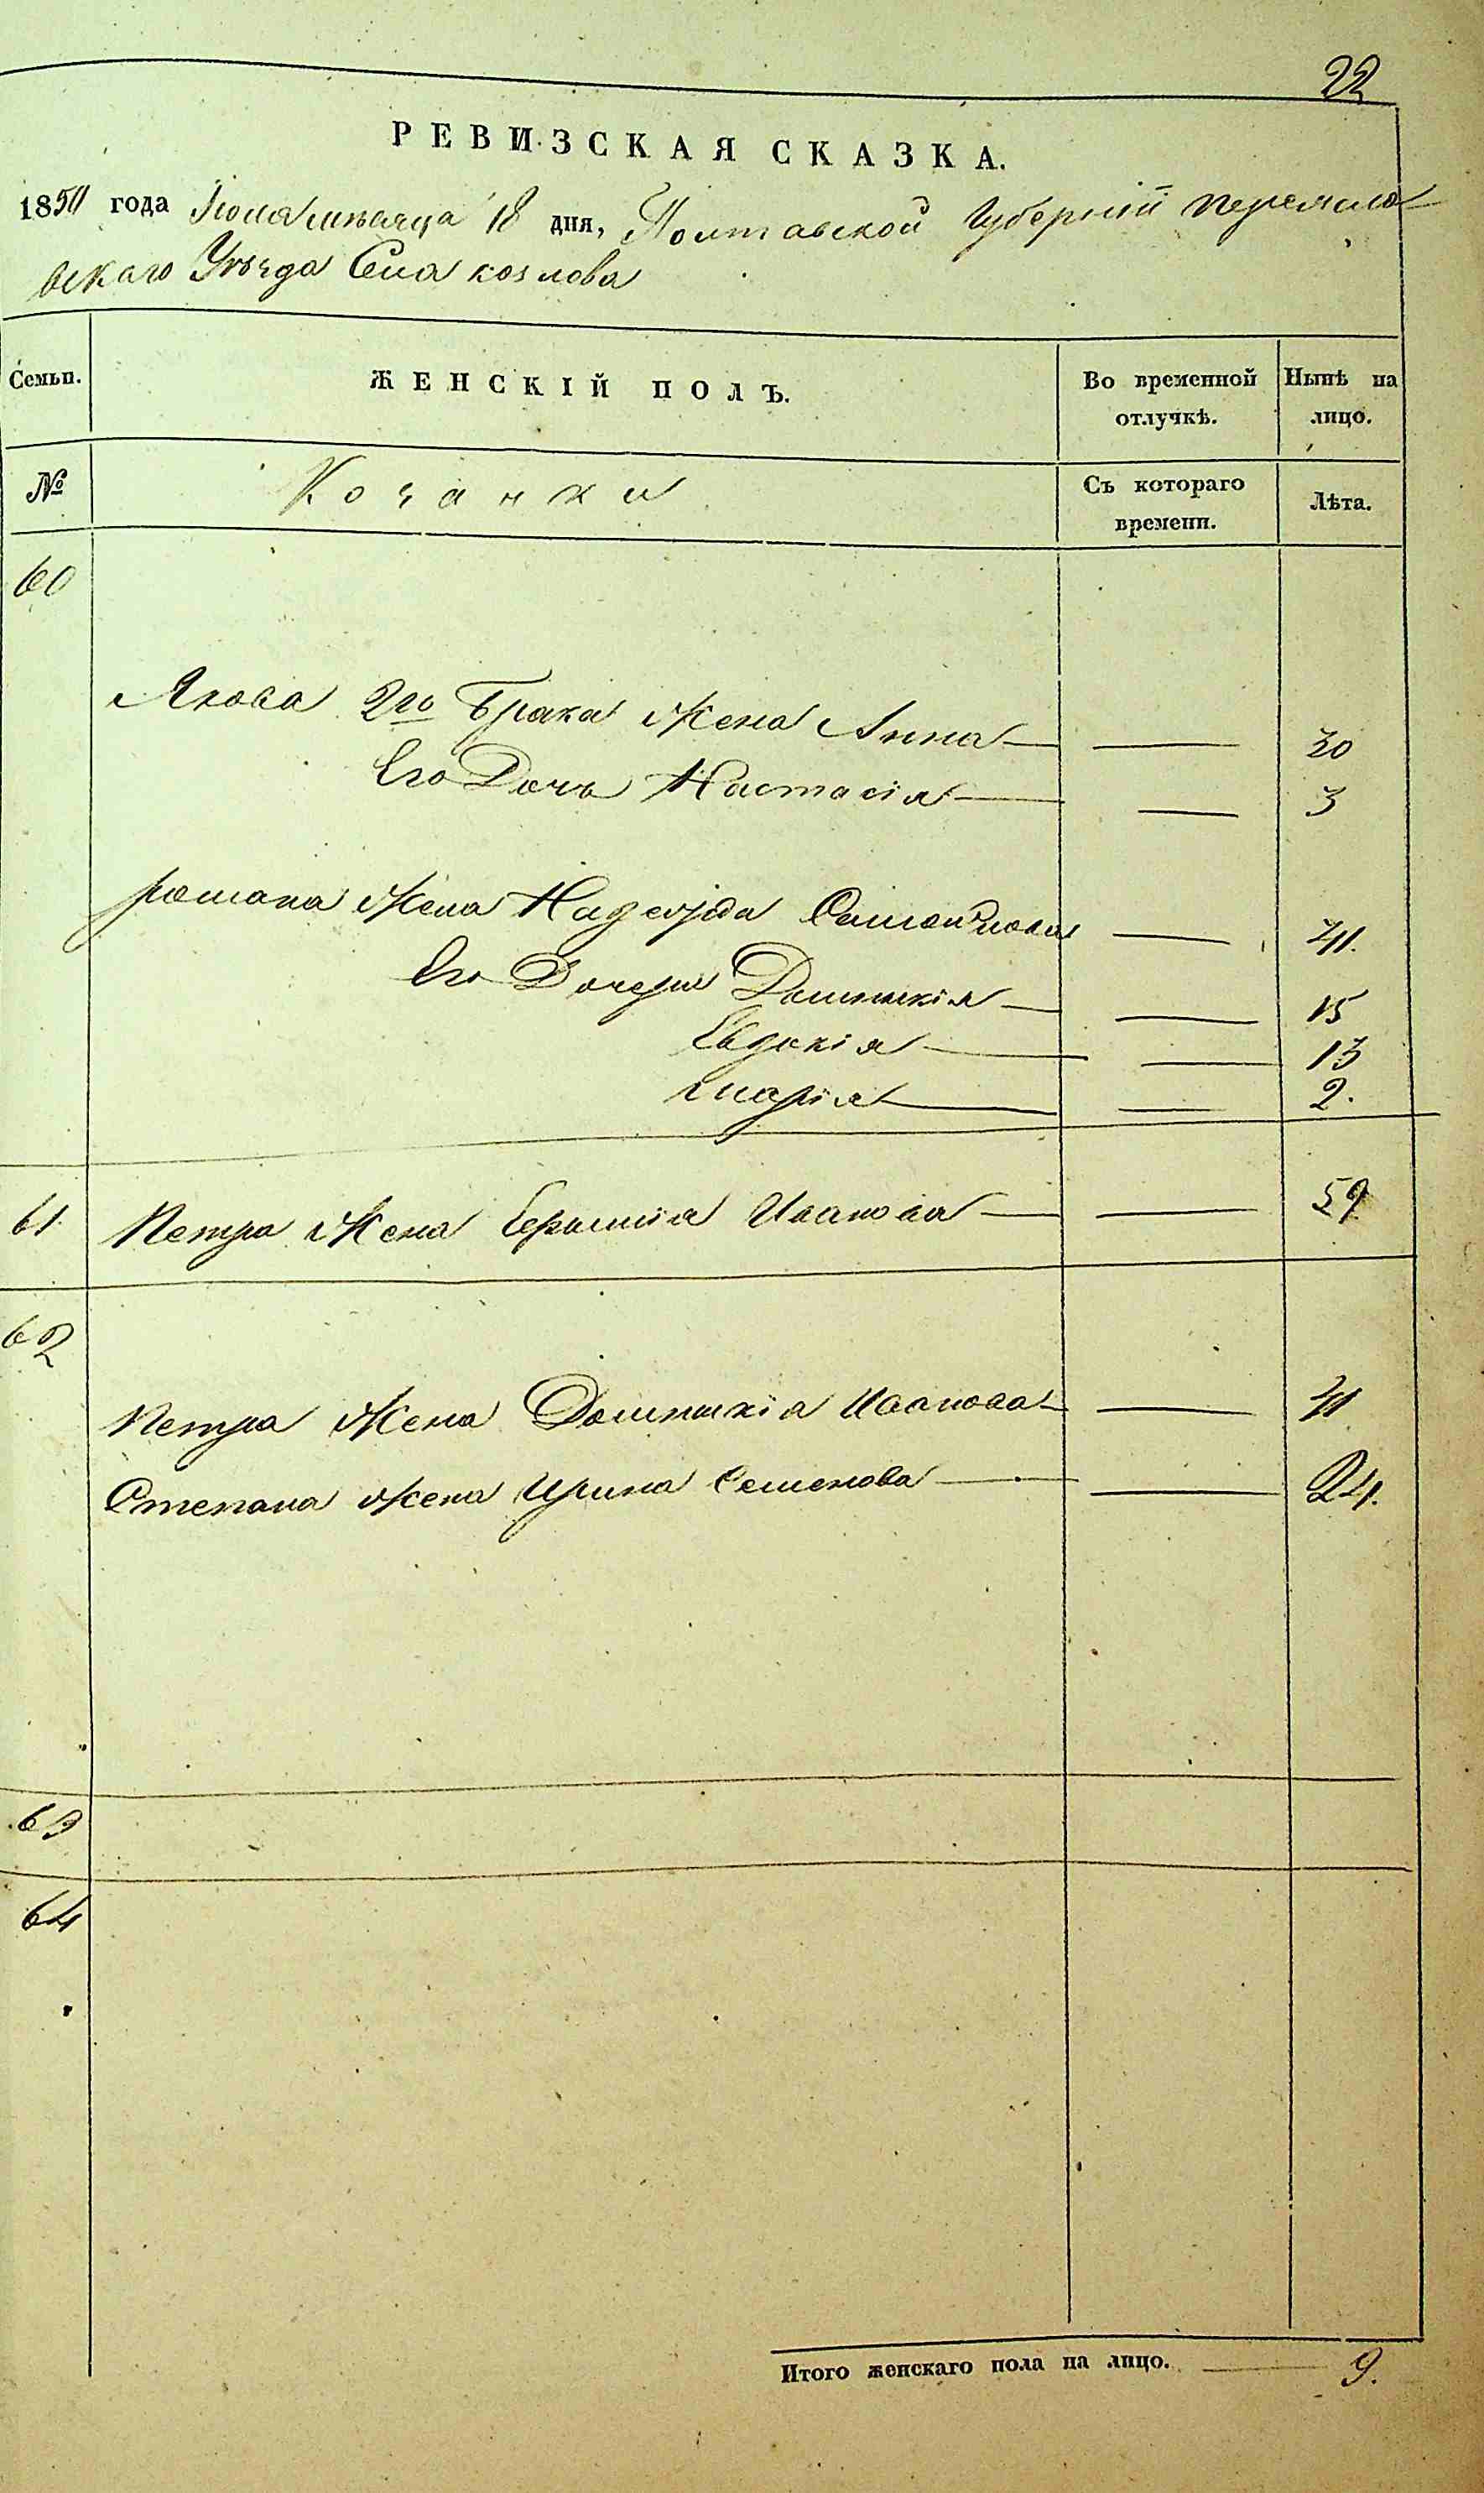 22
РЕВИЗСКАЯ СКАЗКА.
1850 года Іюня мѣсяца 18 дня, Полтавской Губерніи Переясла
вскаго Уѣзда Села козлова
Семьи. ЖЕНСКІЙ ПОЛЪ. Во временной отлучкѣ. Нынѣ на лицо.
№ Козачки Съ котораго времени. Лѣта.
60
Якова 2го Брака Жена Анна 30
Его Дочь Настасія 3
романа Жена Надежда 41.
Его Дочери Домникія 15
Евдокія 13
Марія 2.
61. Петра Жена Ефимия Иванова 59
62
Петра Жена Домникія Иванова 41
Степана Жена Ирина Семенова 24.
63
64
Итого женскаго пола на лицо. 9.